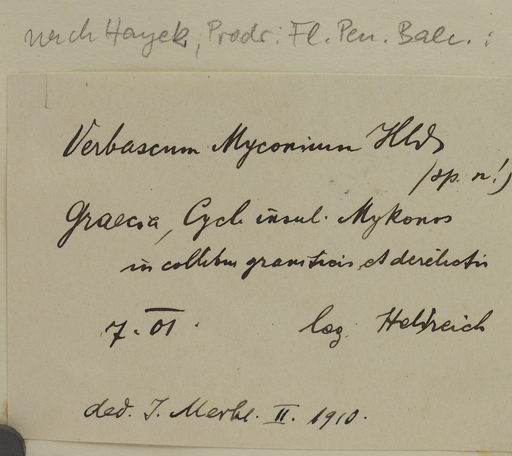 nach Hayek, Prodr. Fl. Pen. Balc. :
Verbascum Myconium Hldr
(sp. n!)
Graecia, Cycl. insul. Mykonos
in collibus graniticis et derelictis
7. 01.
leg. Heldreich
ded. J. Merkl. II. 1910.